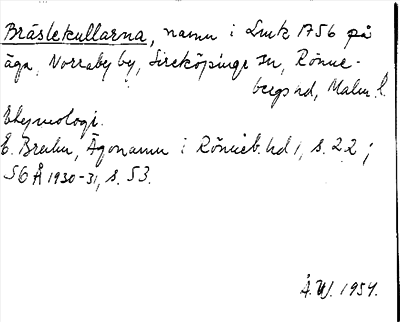 Bräslekullarna, namn i Lmk 1756 på
äga, Norraby by, Sireköpinge sn, Rönne-
bergs hd, Malm. l.
Etymologi.
E. Brehm, Ägonamn i Rönneb. hd 1, s. 22;
SGÅ 1930-31, s. 53.
Å.W. 1954.